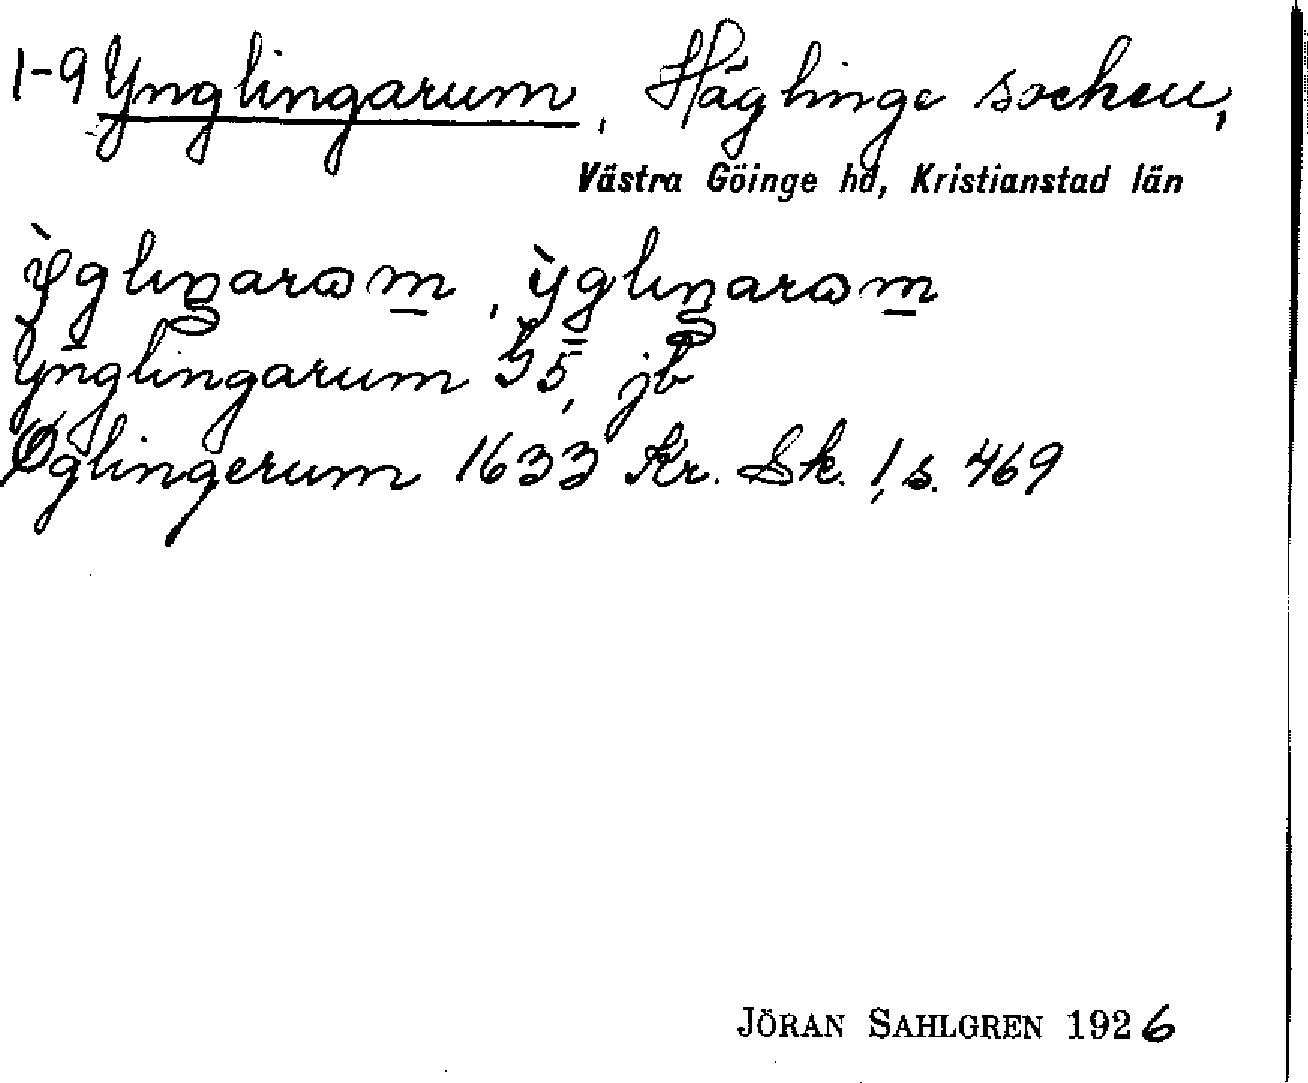 1-9 Ynglingarum, Häglinge socken,
Västra Göinge hd, Kristianstad län
ỳglıŋarωm, ỳglıŋarωm
Ynglingarum G5, jb
Øglingerum 1633 Kr. Sk. 1, s. 469
JÖRAN SAHLGREN 1926